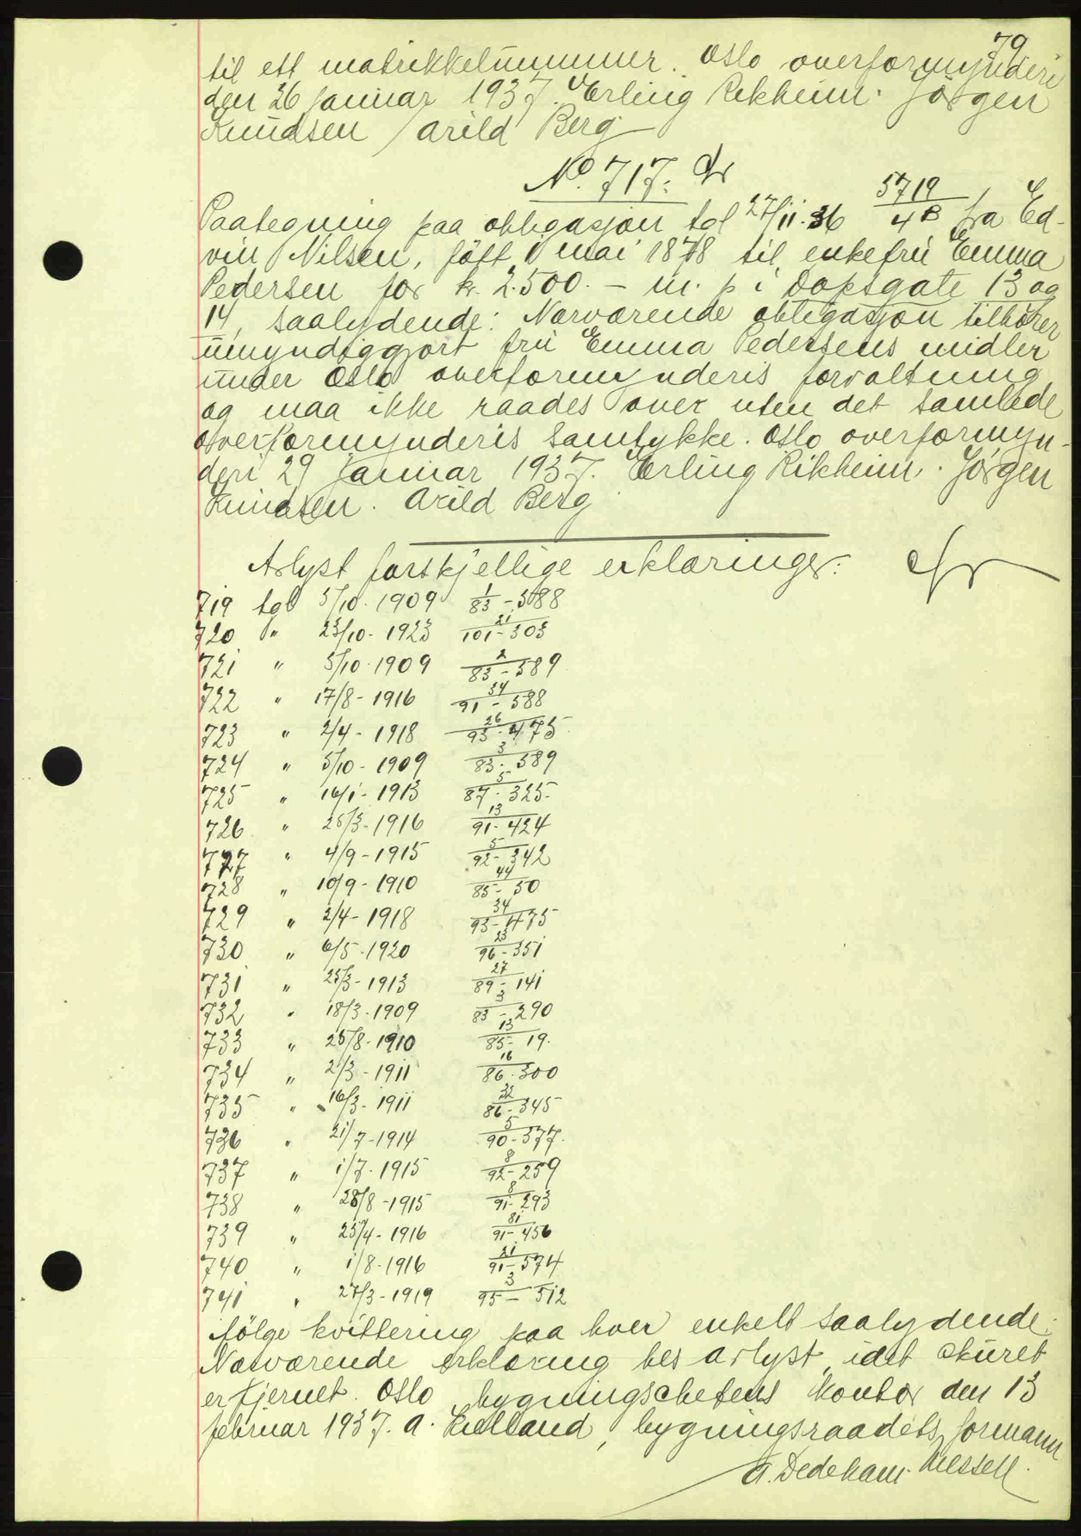 79
til ett matrikkelnummer. Oslo overformynderi
den 26 januar 1937. Erling Rikheim. Jørgen
Knudsen / Arild Berg
No. 717.
Paategning paa obligasjon tgl 27/11.36 5719/4B fra Ed-
vin Nilsen, født 1 mai 1878 til enkefru Emma
Pedersen for kr. 2.500.- m. p. i Dopsgate 13 og
14, saalydende: Nærværende obligasjon tilhører
umyndiggjort fru Emma Pedersens midler
under Oslo overformynderis forvaltning
og maa ikke raades over uten det samlede
overformynderis samtykke. Oslo overformyn-
deri 29 januar 1937. Erling Rikheim. Jørgen
Knudsen. Arild Berg
Avlyst forskjellige erklæringer:
719 tgl 5/10-1909 1/83-588
720 " 23/10-1923 21/101-303
721 " 5/10-1909 2/83-589
722 " 17/8-1916 34/91-588
723 " 2/4-1918 26/93-475
724 " 5/10-1909 3/83-589
725 " 16/1-1913 5/87-325
726 " 25/3-1916 13/91-424
727 " 4/9-1915 5/92-342
728 " 10/9-1910 44/85-50
729 " 2/4-1918 34/93-475
730 " 6/5-1920 23/96-351
731 " 25/3-1913 27/89-141
732 " 18/3-1909 3/83-290
733 " 25/8-1910 13/85-19.
734 " 2/3-1911 16/86-300
735 " 16/3-1911 32/86-345
736 " 21/7-1914 5/90-377.
737 " 1/7-1915 8/92-259
738 " 28/8-1915 8/91-293
739 " 25/4-1916 81/91-456
740 " 1/8-1916 21/91-574
741 " 27/3-1919 3/95-512
ifølge kvittering paa hver enkelt saalydende:
Nærværende erklæring bes avlyst, idet skuret
er fjernet. Oslo bygningschefens kontor den 13
februar 1937. A. Kielland, bygningsraadets formann
A. Dedekam.